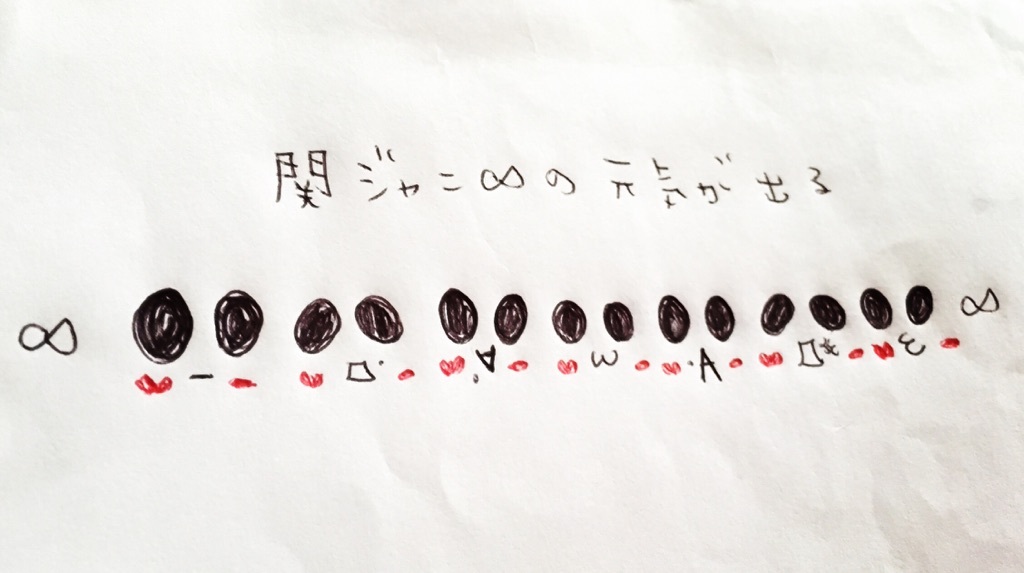 関ジャニ∞の元気が出る
∞ － ロ. ∀. ω .A ロ* ε ∞